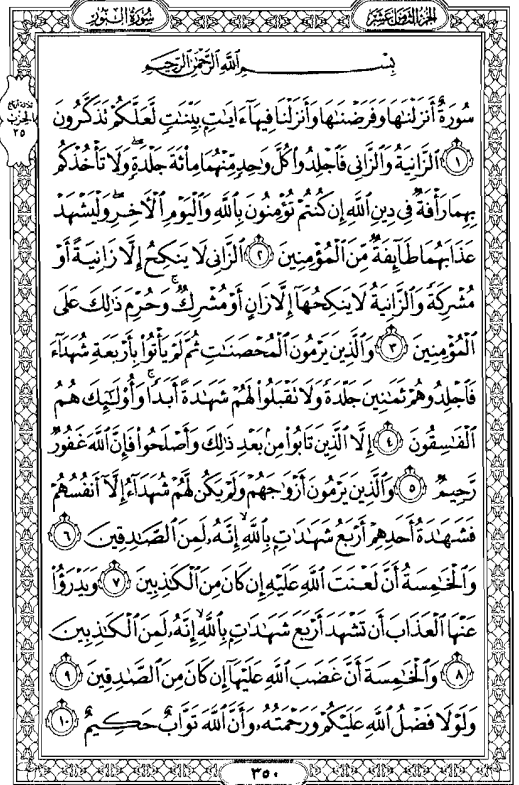 الجزء الثامن عشر
سورة النور
بِسْمِ اللَّهِ الرَّحْمَٰنِ الرَّحِيمِ
سُورَةٌ أَنزَلْنَاهَا وَفَرَضْنَاهَا وَأَنزَلْنَا فِيهَا ءَايَاتٍ بَيِّنَاتٍ لَّعَلَّكُمْ تَذَكَّرُونَ
١ الزَّانِيَةُ وَالزَّانِي فَاجْلِدُوا كُلَّ وَاحِدٍ مِّنْهُمَا مِائَةَ جَلْدَةٍ وَلَا تَأْخُذْكُم
بِهِمَا رَأْفَةٌ فِي دِينِ اللَّهِ إِن كُنتُمْ تُؤْمِنُونَ بِاللَّهِ وَالْيَوْمِ الْآخِرِ وَلْيَشْهَدْ
عَذَابَهُمَا طَائِفَةٌ مِّنَ الْمُؤْمِنِينَ ٢ الزَّانِي لَا يَنكِحُ إِلَّا زَانِيَةً أَوْ
مُشْرِكَةً وَالزَّانِيَةُ لَا يَنكِحُهَا إِلَّا زَانٍ أَوْ مُشْرِكٌ وَحُرِّمَ ذَٰلِكَ عَلَى
الْمُؤْمِنِينَ ٣ وَالَّذِينَ يَرْمُونَ الْمُحْصَنَاتِ ثُمَّ لَمْ يَأْتُوا بِأَرْبَعَةِ شُهَدَاءَ
فَاجْلِدُوهُمْ ثَمَانِينَ جَلْدَةً وَلَا تَقْبَلُوا لَهُمْ شَهَادَةً أَبَدًا وَأُولَٰئِكَ هُمُ
الْفَاسِقُونَ ٤ إِلَّا الَّذِينَ تَابُوا مِن بَعْدِ ذَٰلِكَ وَأَصْلَحُوا فَإِنَّ اللَّهَ غَفُورٌ
رَّحِيمٌ ٥ وَالَّذِينَ يَرْمُونَ أَزْوَاجَهُمْ وَلَمْ يَكُن لَّهُمْ شُهَدَاءُ إِلَّا أَنفُسُهُمْ
فَشَهَادَةُ أَحَدِهِمْ أَرْبَعُ شَهَادَاتٍ بِاللَّهِ إِنَّهُ لَمِنَ الصَّادِقِينَ ٦
وَالْخَامِسَةُ أَنَّ لَعْنَتَ اللَّهِ عَلَيْهِ إِن كَانَ مِنَ الْكَاذِبِينَ ٧ وَيَدْرَؤُا
عَنْهَا الْعَذَابَ أَن تَشْهَدَ أَرْبَعَ شَهَادَاتٍ بِاللَّهِ إِنَّهُ لَمِنَ الْكَاذِبِينَ
٨ وَالْخَامِسَةَ أَنَّ غَضَبَ اللَّهِ عَلَيْهَا إِن كَانَ مِنَ الصَّادِقِينَ ٩
وَلَوْلَا فَضْلُ اللَّهِ عَلَيْكُمْ وَرَحْمَتُهُ وَأَنَّ اللَّهَ تَوَّابٌ حَكِيمٌ ١٠
الحزب
٣٥
٣٥٠